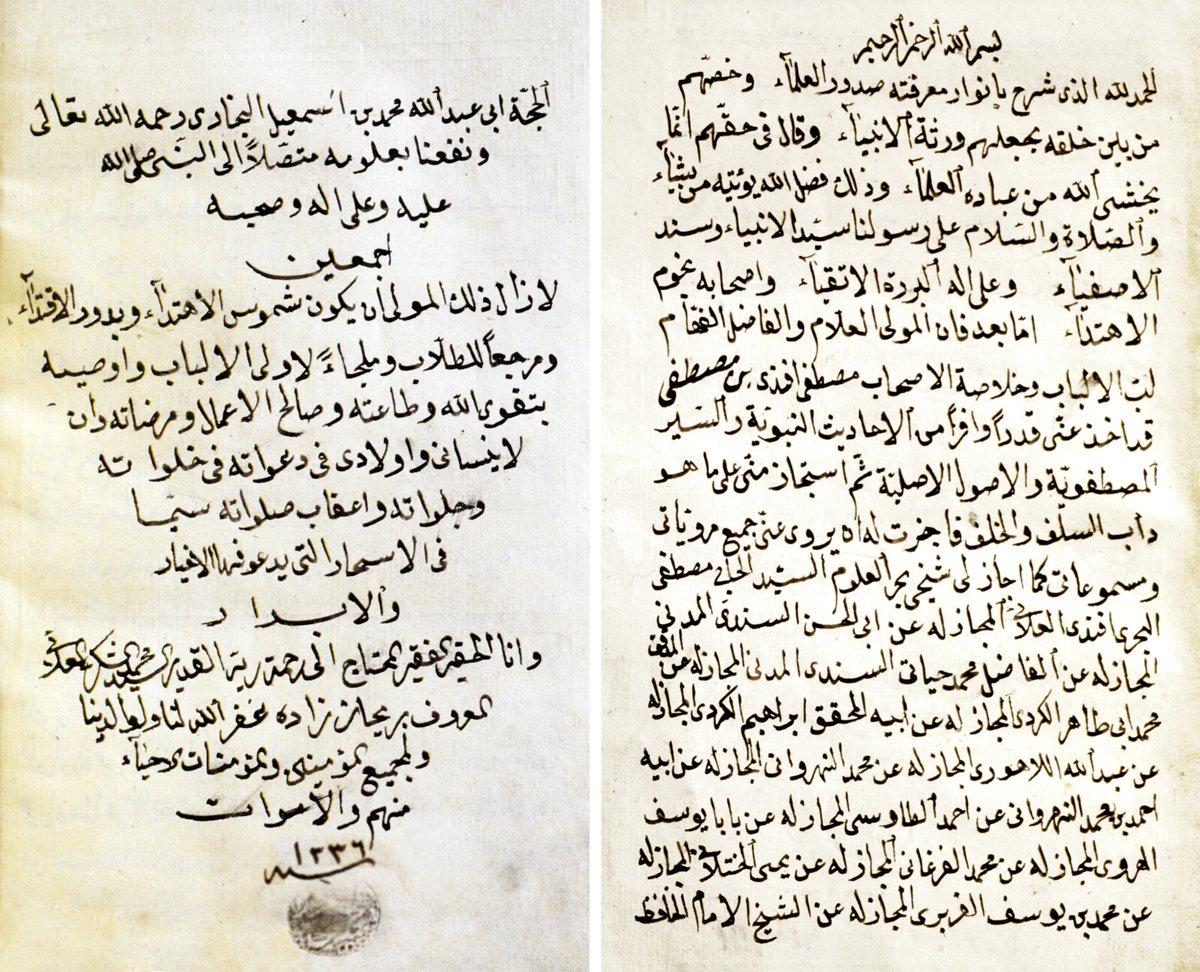 بسم الله الرحمن الرحيم
الحمد لله الذى شرح بانوار معرفته صدور العلمآء وخصّهم
من بين خلقه بجعلهم ورثة الانبيآء وقال فى حقّهم انّما
يخشى الله من عباده العلمآء وذلك فضل الله يؤتيه من يشآء
والصّلاة والسّلام على رسولنا سيّد الانبياء وسند
الاصفيآء وعلى اله البررة الاتقيآء واصحابه نجوم
الاهتدآء امّا بعد فان المولى العلّام والفاضل الفخّام
لبّ الالباب وخلاصة الاصحاب مصطفى افندى بن مصطفى
قد اخذ عنّى قدراً وافراً من الاحاديث النبويّة والسّير
المصطفويّة والاصول الاصليّة ثمّ استجاز منّى على ما هو
دأب السلف والخلف فاجزت له ان يروى عنّى جميع مروياتى
ومسموعاتى كما اجاز لى شيخى بحر العلوم السيّد الحاج مصطفى
البحرى افندى العلائى المجاز له عن ابى الحسن السندى المدنى
المجاز له عن الفاضل محمد حياتى السندى المدنى المجاز له عن المدقق
محمد ابى طاهر الكردى المجاز له عن ابيه المحقق ابراهيم الكردى المجاز له
عن عبد الله اللاهورى المجاز له عن محمد النهروانى المجاز له عن ابيه
احمد بن محمد النهروانى عن احمد الطاوسى المجاز له عن بابا يوسف
الهروى المجاز له عن محمد الفرغانى المجاز له عن يحيى الختلانى المجاز له
عن محمد بن يوسف الفربرى المجاز له عن الشيخ الامام الحافظ
الحجّة ابى عبد الله محمد بن اسمعيل البخارى رحمه الله تعالى
ونفعنا بعلومه متصلاً الى النبى صلى الله
عليه وعلى اله وصحبه
اجمعين
لا زال ذلك المولى ان يكون شموس الاهتدآء وبدور الاقتدآء
ومرجعاً للطلاب وملجاءً لاولى الالباب واوصيه
بتقوى الله وطاعته وصالح الاعمال ومرضاته وان
لا ينسانى واولادى فى دعواته فى خلواته
وجلواته واعقاب صلواته سيّما
فى الاسحار التى يدعو فيها الاخيار
والابرار
وانا الحقير الفقير المحتاج الى رحمة ربه القدير السيد محمد
المعروف زاده غفر الله لنا ولوالدينا
ولجميع المؤمنين والمؤمنات الاحيآء
منهم والاموات
سنه ١٢٣٦